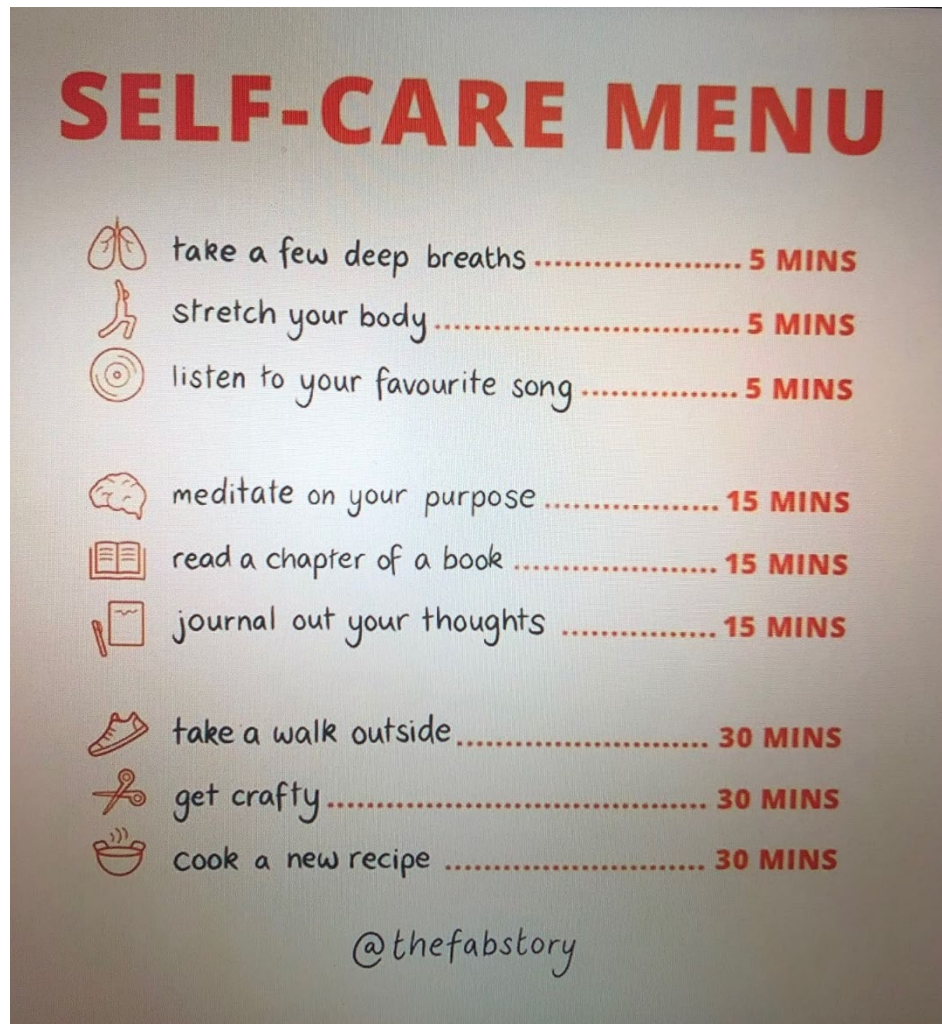 SELF-CARE MENU
take a few deep breaths ..................... 5 MINS
stretch your body ............................... 5 MINS
listen to your favourite song ................ 5 MINS
meditate on your purpose .................. 15 MINS
read a chapter of a book ..................... 15 MINS
journal out your thoughts ................ 15 MINS
take a walk outside .......................... 30 MINS
get crafty ....................................... 30 MINS
cook a new recipe ........................... 30 MINS
@thefabstory